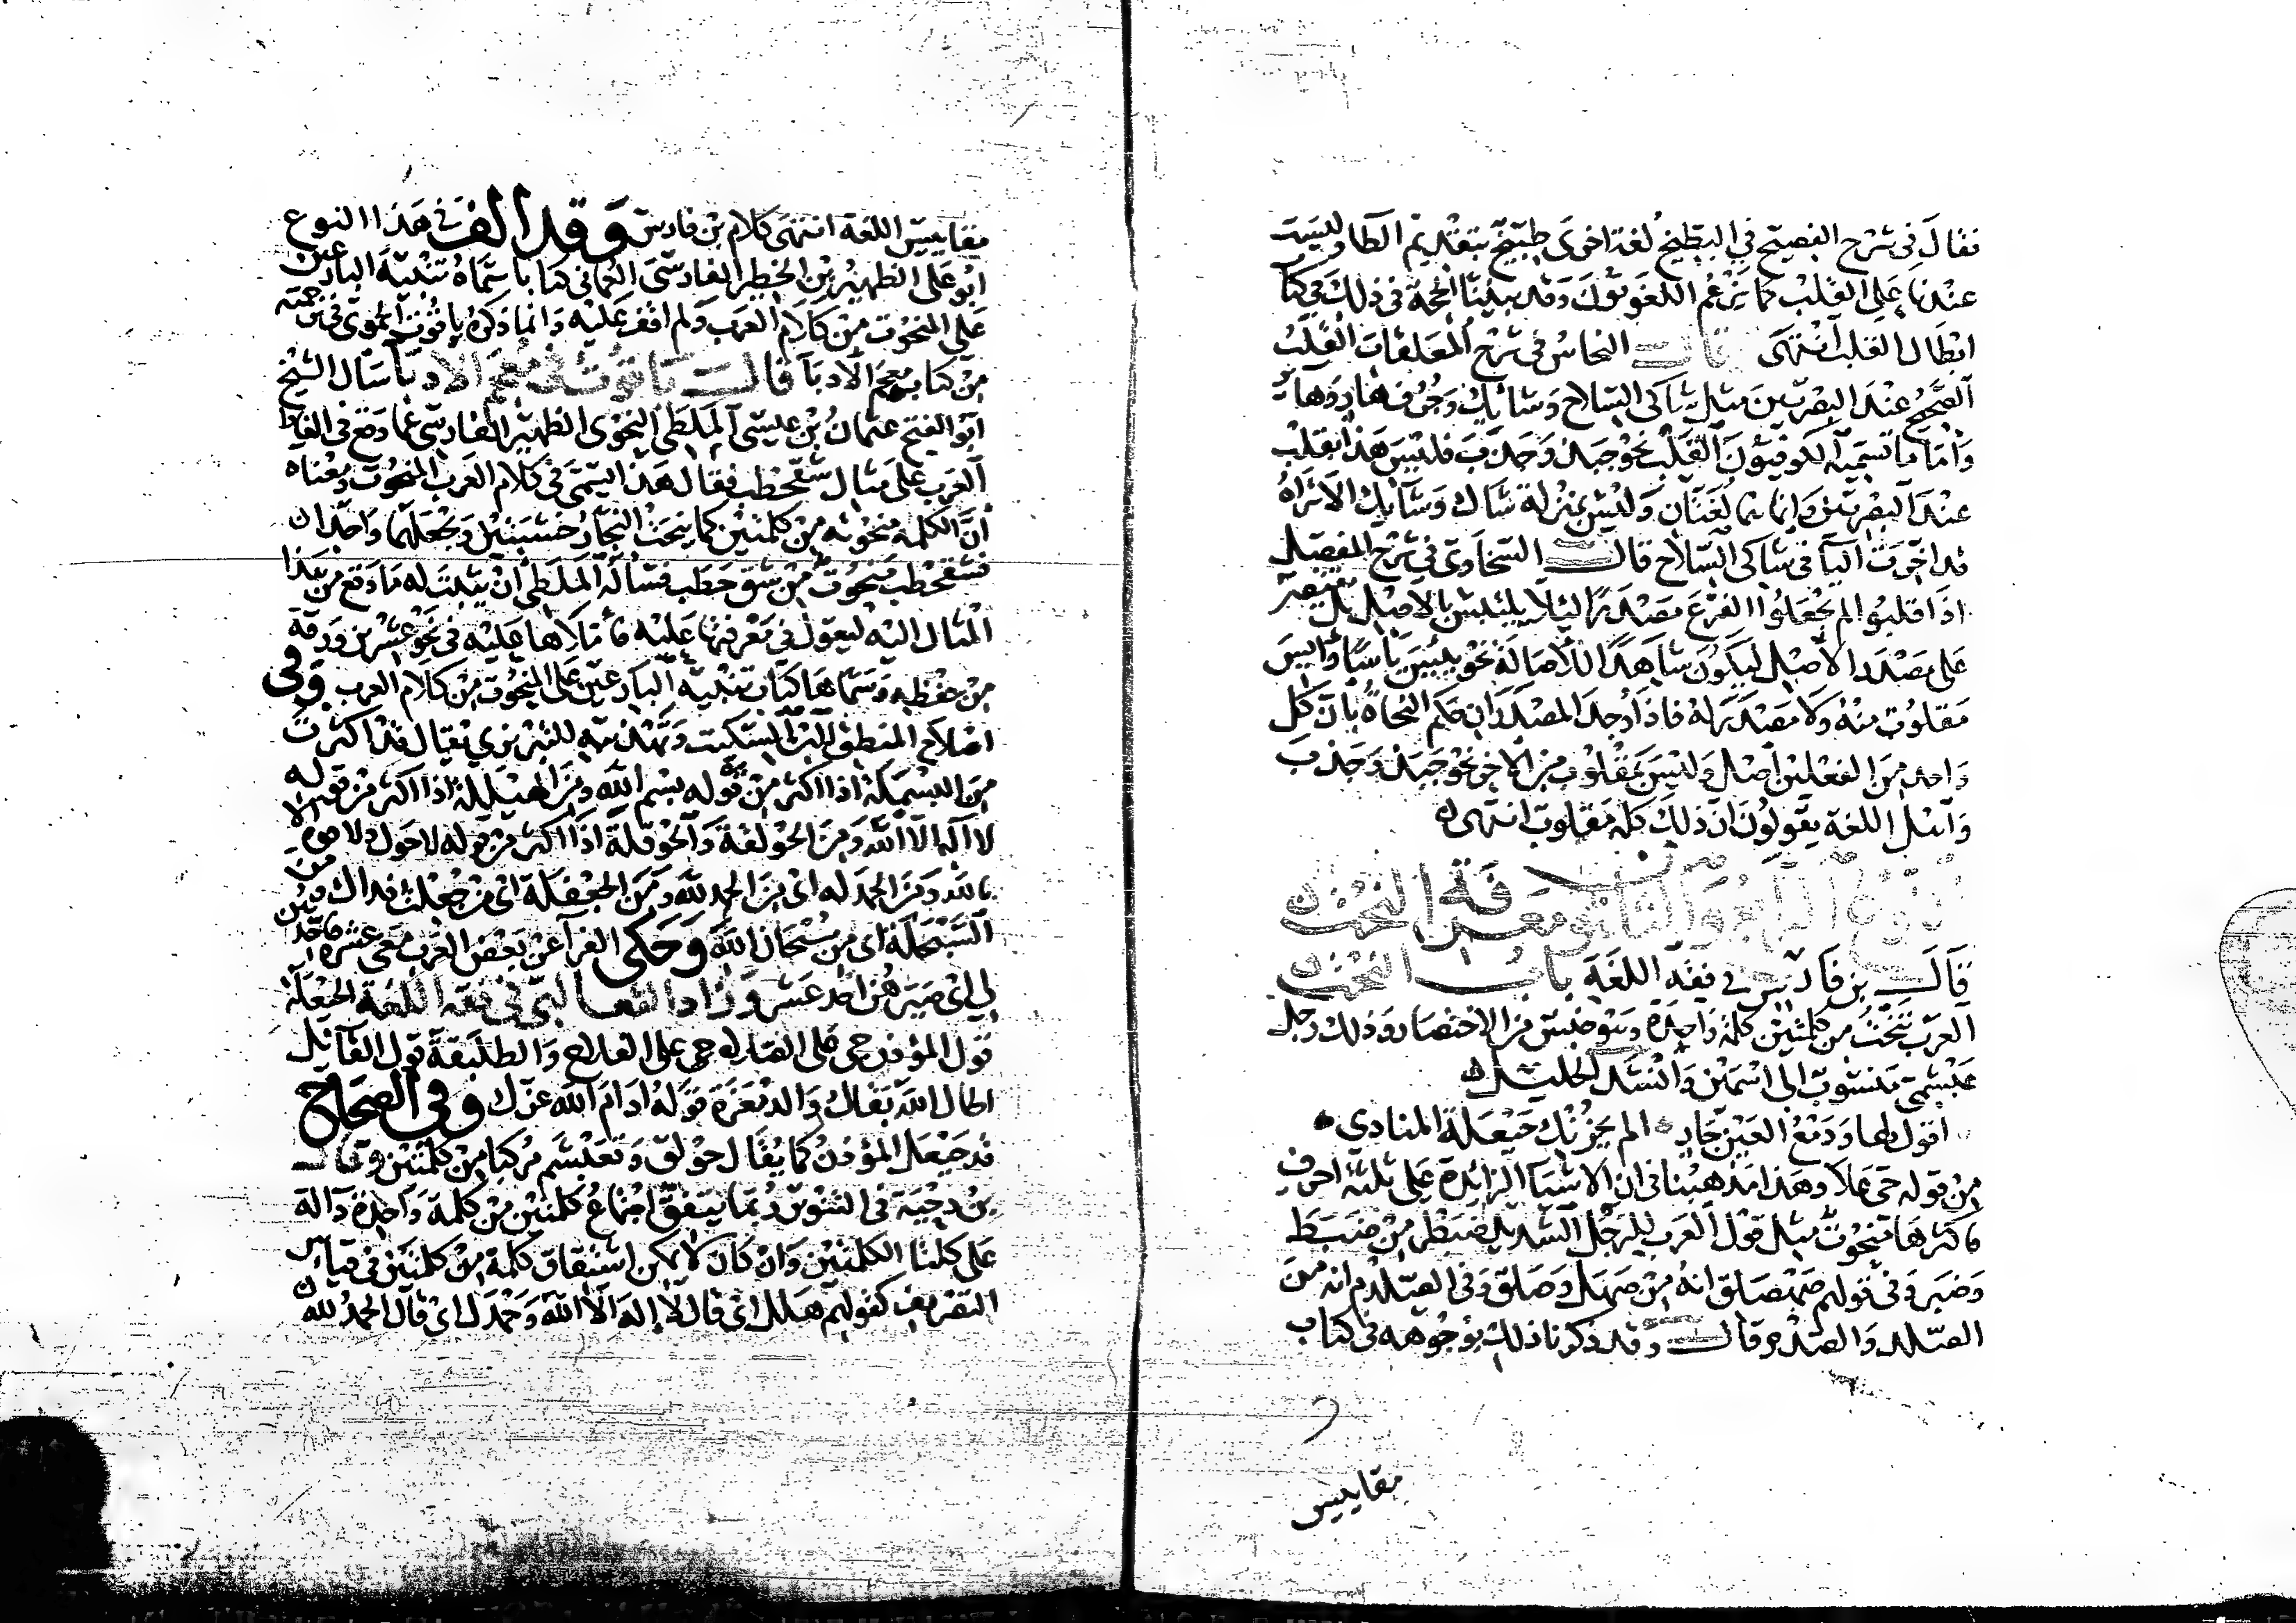 فقال في شرح الفصيح في البطيخ لغة اخرى طبيخ بتقديم الطا وليست
عندنا على القلب كما يزعم اللغويون وقد بينا الحجة في ذلك في كتا
ابطال القلب انتهى قال النحاس في شرح المعلقات القلب
الصحيح عند البصريين مثل شاكى السلاح وشايك وجرف هار وهاير
واما ما تسميه الكوفيون القلب نحو جبذ وجذب فليس هذا بقلب
عند البصريين وانما هما لغتان وليس بمنزلة شاك وشايك الا تراه
قد اخرت اليا في شاكى السلاح قال السخاوى في شرح المفصل
اذا قلبوا لم يجعلوا للفرع مصدرا ليلا يلتبس بالاصل بل يقتصر
على مصدر الاصل ليكون شاهدا للاصالة نحو ييس ياسا وايس
مقلوب منه ولا مصدر له فاذا وجد المصدران حكم النحاة بان كل
واحد من الفعلين اصل وليس بمقلوب من الاخر نحو جبذ وجذب
واهل اللغة يقولون ان ذلك كله مقلوب انتهى
النوع الرابع والثلاثون معرفة النحت
قال بن فارس في فقه اللغة باب النحت
العرب تنحت من كلمتين كلمة واحدة وهو جنس من الاختصار وذلك رجل
عبشمي منسوب الى اسمين وانشد الخليل
اقول لها ودمع العين جار الم يحزنك حيعلة المنادي
من قوله حى على وهذا مذهبنا في ان الاشيا الزائدة على ثلثة احرف
فاكثرها منحوت مثل قول العرب للرجل الشديد ضبطر من ضبط
وضبر وفي قولهم صهصلق انه من صهل وصلق وفي الصلدم انه من
الصلد والصدم قال وقد ذكرنا ذلك بوجوهه في كتاب
مقاييس
مقاييس اللغة انتهى كلام بن فارس وقد الف في هذا النوع
ابو على الظهير بن الخطير الفارسى العماني كتابا سماه تنبيه البارعين
على المنحوت من كلام العرب ولم اقف عليه وانما ذكره ياقوت الحموي في ترجمته
من كتابه معجم الادبا قال ياقوت في معجم الادبا سال الشيخ
ابو الفتح عثمان بن عيسى الملطي النحوى الظهير الفارسى عما وقع في الفاظ
العرب على مثال شقحطب فقال هذا يسمى في كلام العرب المنحوت ومعناه
ان الكلمة منحوتة من كلمتين كما ينحت النجار خشبتين ويجعلهما واحدا
فشقحطب منحوت من شق حطب فساله الملطي ان يثبت له ما وقع من هذا
المثال اليه ليعول في معرفتها عليه فاملاها عليه في نحو عشرين ورقة
من حفظه وسماها كتاب تنبيه البارعين على المنحوت من كلام العرب وفي
اصلاح المنطق لابن السكيت وتهذيبه للتبريزي يقال قد اكثرت
من البسملة اذا اكثر من قوله بسم الله ومن الهيللة اذا اكثر من قوله
لا اله الا الله ومن الحولقة والحوقلة اذا اكثر من قوله لا حول ولا قوة الا
بالله ومن الحمدلة اى من الحمد لله ومن الجعفلة اى من جعلت فداك ومن
السبحلة اى من سبحان الله وحكى الفرا عن بعض العرب معي عشرة فاحدهن
لي اى صيرهن احد عشر وزاد الثعالبي في فقه اللغة الحيعلة
قول المؤذن حى على الصلاة حى على الفلاح والطلبقة قول القائل
اطال الله بقاك والدمعزة قوله ادام الله عزك وفي الصحاح
قد حيعل المؤذن كما يقال حولق وتعبشم مركبا من كلمتين وقال
بن دحية في التنوير ربما يتفق اجتماع كلمتين من كلمة واحدة دالة
على كلتا الكلمتين وان كان لا يمكن اشتقاق كلمة من كلمتين في قياس
التصريف كقولهم هلل اى قال لا اله الا الله وحمدل اى قال الحمد لله